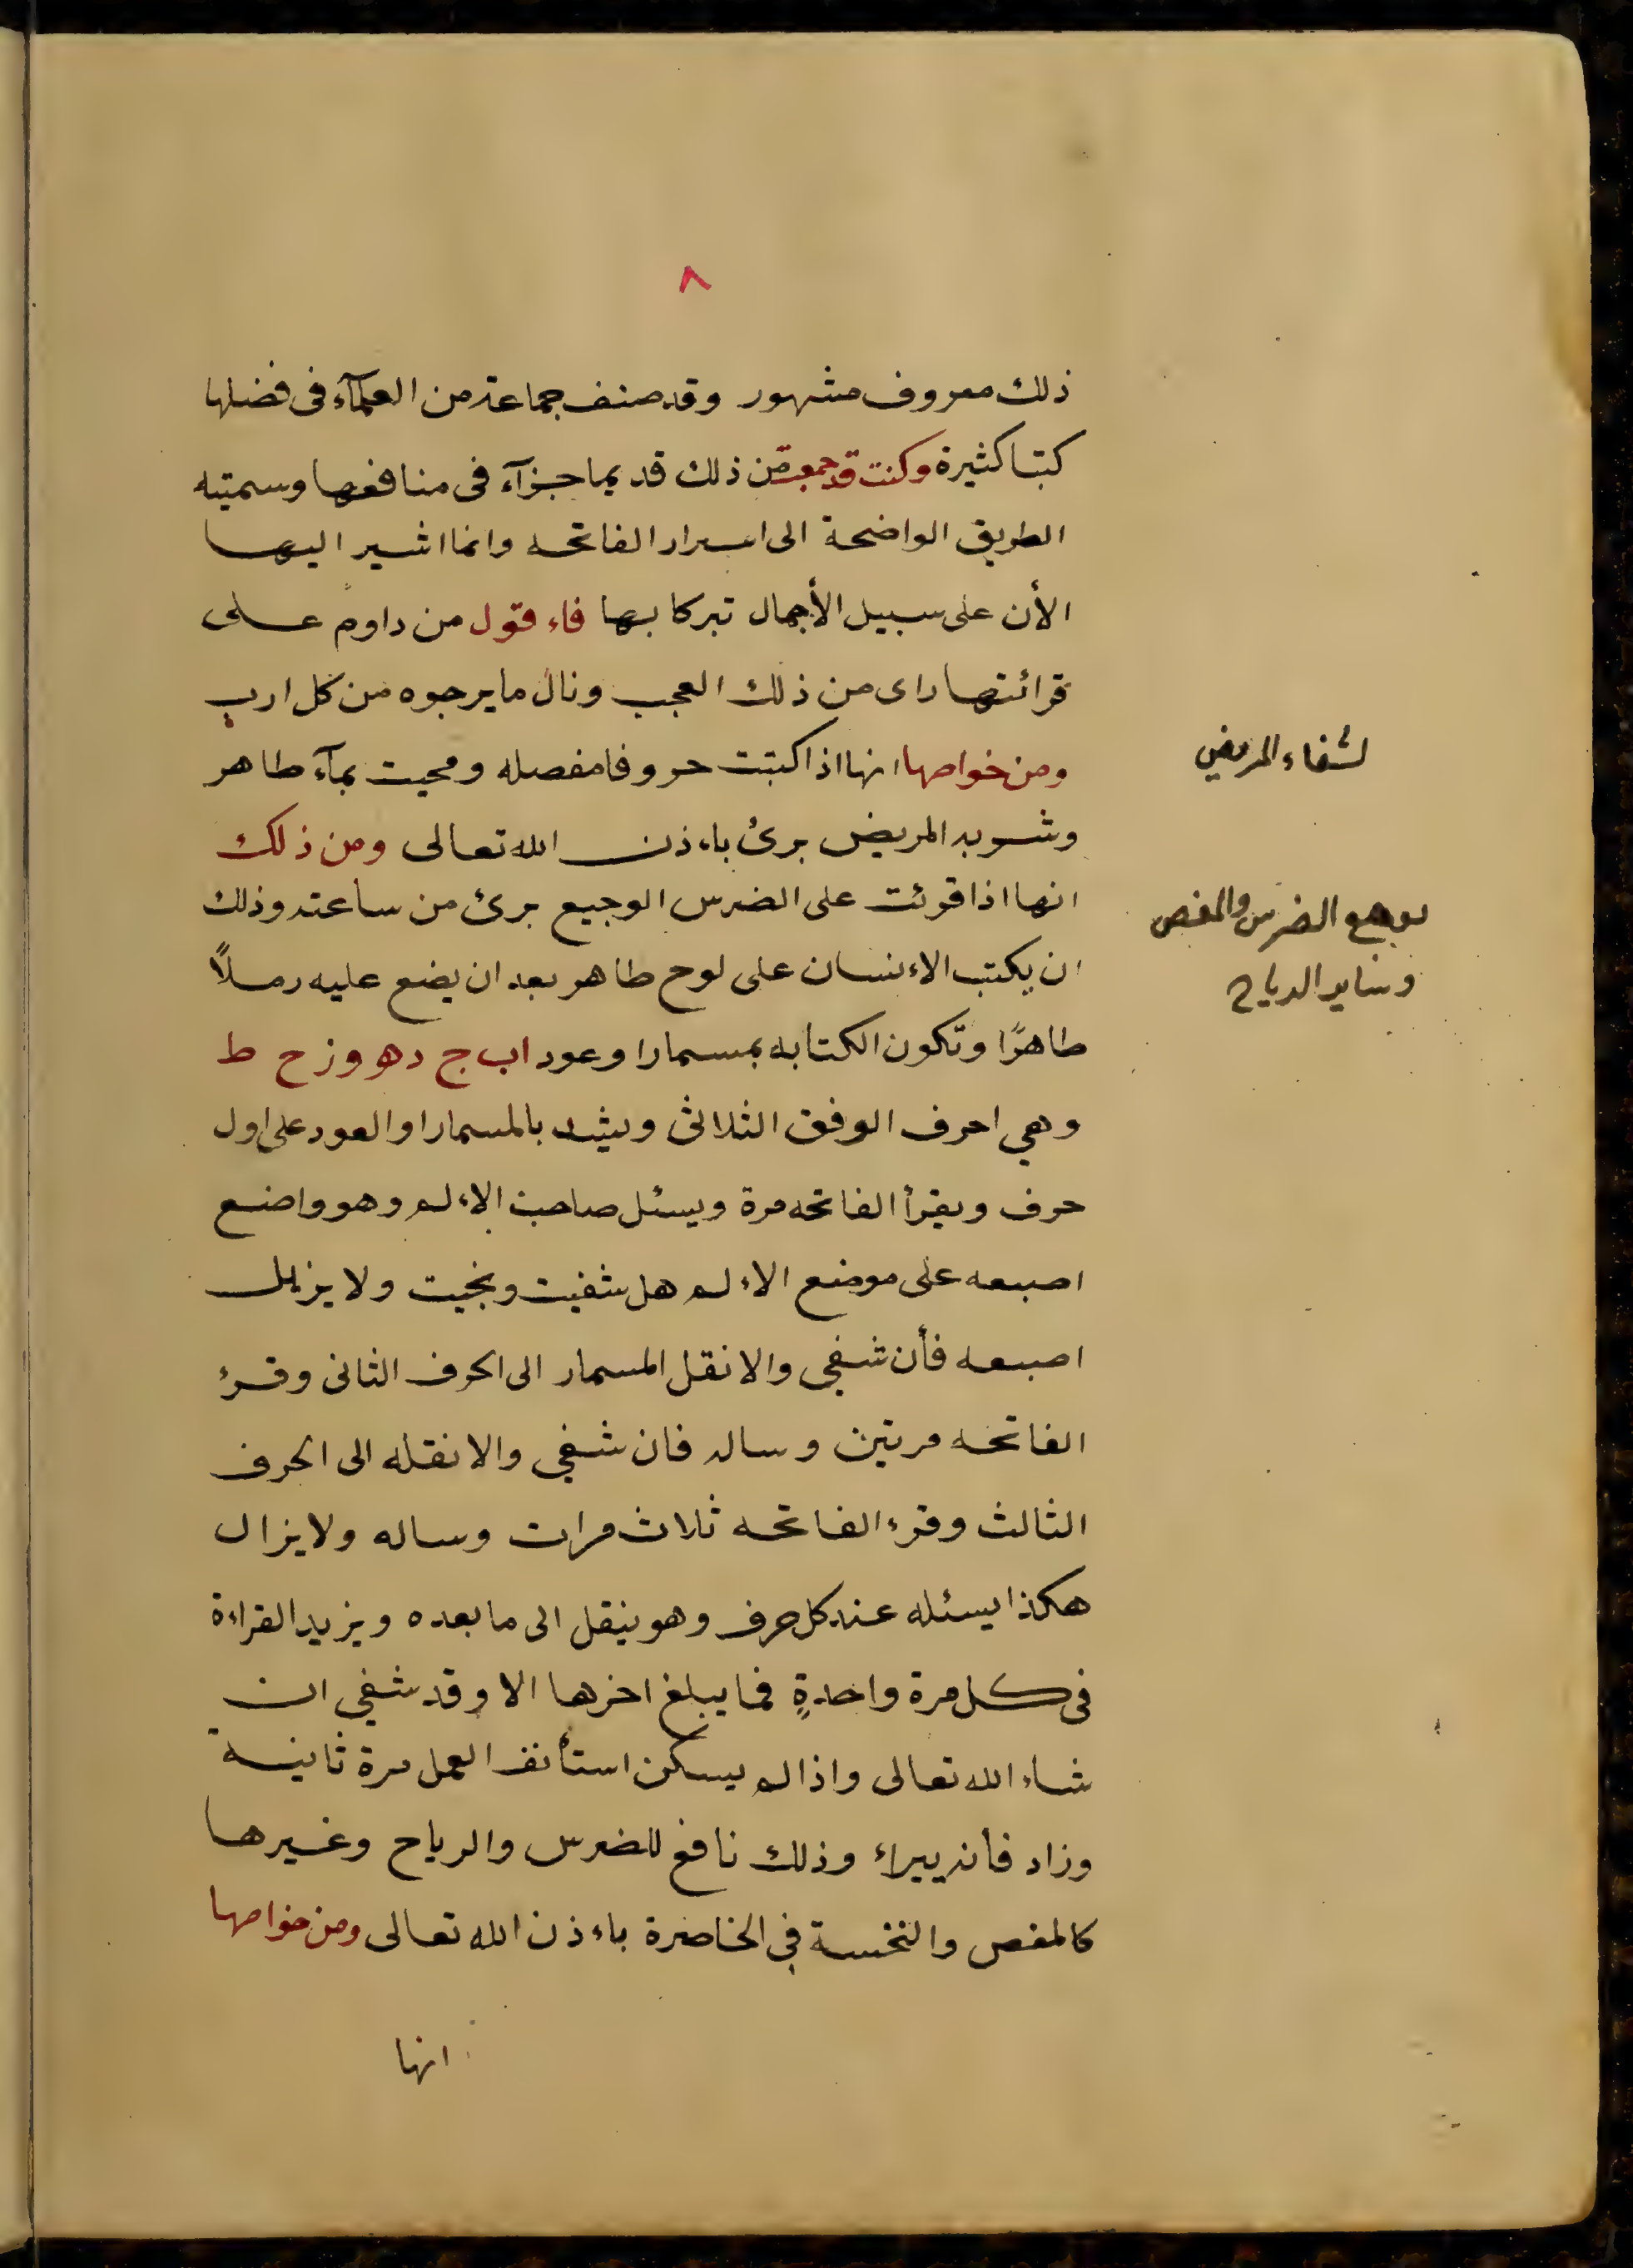 ٨
ذلك معروف مشهور وقد صنف جماعة من العلمآء فى فضلها
كتبا كثيرة وكنت قد جمعت من ذلك قديما جزآء فى منافعها وسميته
الطريق الواضحة الى اسرار الفاتحه وانما اشير اليها
الأن على سبيل الأجمال تبركا بها فاء قول من داوم على
قرائتها راى من ذلك العجب ونال ما يرجوه من كل ارب
ومن خواصها انها اذا كتبت حروفا مفصله ومحيت بمآء طاهر
لشفاء المريض
وشربه المريض برئ باء ذن الله تعالى ومن ذلك
انها اذا قرئت على الضرس الوجيع برئ من ساعته وذلك
لوجع الضرس والمغص
وساير الرياح
ان يكتب الاء نسان على لوح طاهر بعد ان يضع عليه رملاً
طاهرًا وتكون الكتابه بمسمار او عود اب ج د ه و ز ح ط
وهي احرف الوفق الثلاثى ويشد بالمسمار او العود على اول
حرف ويقرأ الفاتحه مرة ويسئل صاحب الاء لم وهو واضع
اصبعه على موضع الاء لم هل شفيت ونجيت ولا يزيل
اصبعه فأن شفى والا نقل المسمار الى الحرف الثانى وقرء
الفاتحه مرتين وساله فان شفى والا نقله الى الحرف
الثالث وقرء الفاتحه ثلاث مرات وساله ولا يزال
هكذا يسئله عند كل حرف وهو ينقل الى ما بعده ويزيد القراءة
فى كل مرة واحدةٍ فما يبلغ اخرها الا وقد شفي ان
شاء الله تعالى واذا لم يسكن استأنف العمل مرة ثانية
وزاد فأنه يبراء وذلك نافع للضرس والرياح وغيرها
كالمغص والنخسة في الخاصرة باء ذن الله تعالى ومن خواصها
انها